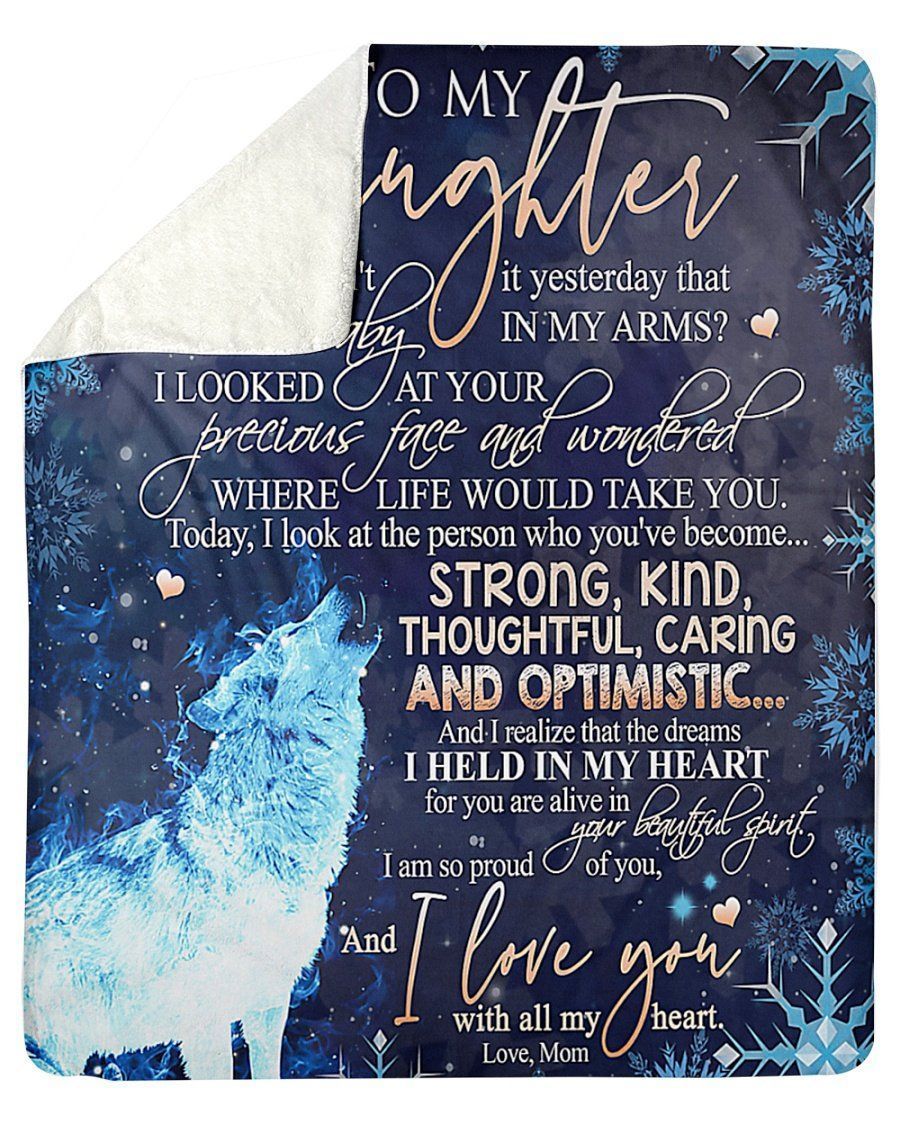 O MY
ughter
't it yesterday that
aby IN MY ARMS?
I LOOKED AT YOUR
precious face and wondered
WHERE LIFE WOULD TAKE YOU.
Today, I look at the person who you've become...
STRONG, KIND,
THOUGHTFUL, CARING
AND OPTIMISTIC...
And I realize that the dreams
I HELD IN MY HEART
for you are alive in
your beautiful spirit.
I am so proud of you,
And I love you
with all my heart.
Love, Mom